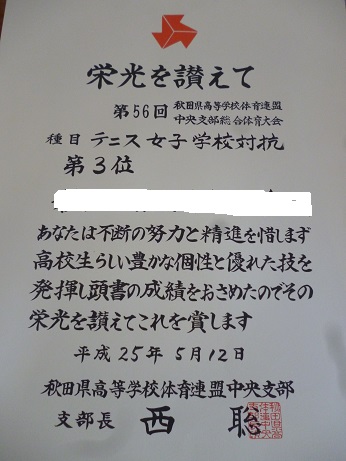 栄光を讃えて
第56回 秋田県高等学校体育連盟
中央支部総合体育大会
種目 テニス女子学校対抗
第3位
あなたは不断の努力と精進を惜しまず
高校生らしい豊かな個性と優れた技を
発揮し頭書の成績をおさめたのでその
栄光を讃えてこれを賞します
平成25年5月12日
秋田県高等学校体育連盟中央支部
支部長 西 聡